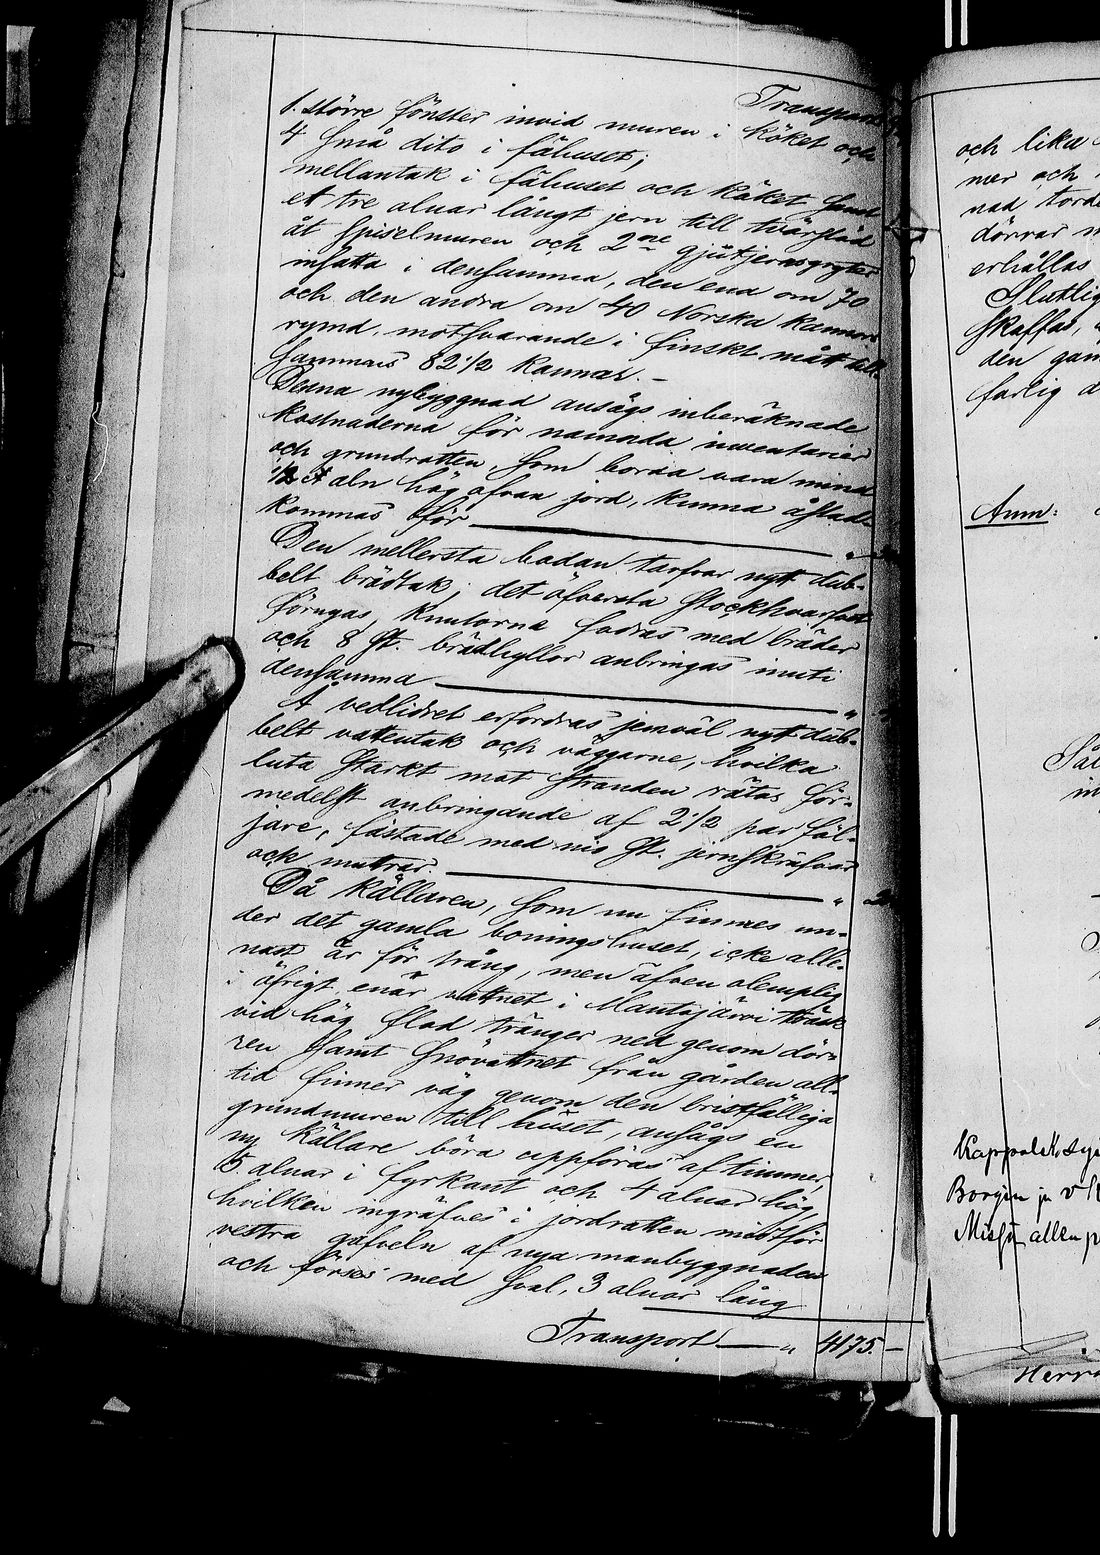 Transport
1. större fönster invid muren i köket och
4 små dito i fähuset;
mellantak i fähuset och köket samt
et tre alnar långt jern till tvärstöd
åt spiselmuren och 2ne gjutjernsgrytor
insatta i densamma, den ena om 70
och den andra om 40 Norska kannors
rymd, motsvarande i finskt mått till-
sammans 82 1/2 kannor. –
Denna nybyggnad ansågs inberäknade
kostnaderna för nämnda inventarier
och grundvalten, som borde vara minst
1/2 aln hög ofvan jord, kunna åstad-
kommas för "
Den mellersta bodan tarfvar nytt dub-
belt brädtak; det öfversta stockhvarfvet
förnyas, knutarna fodras med bräder
och 8 st. brädhyllor anbringas inuti
densamma "
Å vedlidret erfordras jemväl nytt dub-
belt vattentak och väggarne, hvilka
luta starkt mot stranden rätas för-
medelst anbringande af 2 1/2 par föl-
jare, fästade med nio st. jernskrufvar
och muttrar. "
Då källaren, som nu finnes un-
der det gamla boningshuset, icke alle-
nast är för trång, men äfven olämplig
i öfrigt, enär vattnet i Mantojärvi träsk
vid hög flod tränger ned genom dör-
ren samt snövattnet från gården all-
tid finner väg genom den bristfälliga
grundmuren till huset, ansågs en
ny källare böra uppföras af timmer,
5. alnar i fyrkant och 4 alnar hög,
hvilken ingräfves i jordvallen midtför
vestra gafveln af nya manbyggnaden
och förses med sval, 3 alnar lång
Transport " 4175. –
och lika
mer och
nad
dörrar
erhållas
Slutlig
skaffas,
den gam
farlig
Anm: